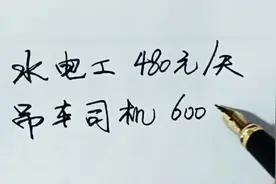 水电工 480元/天
吊车司机 600